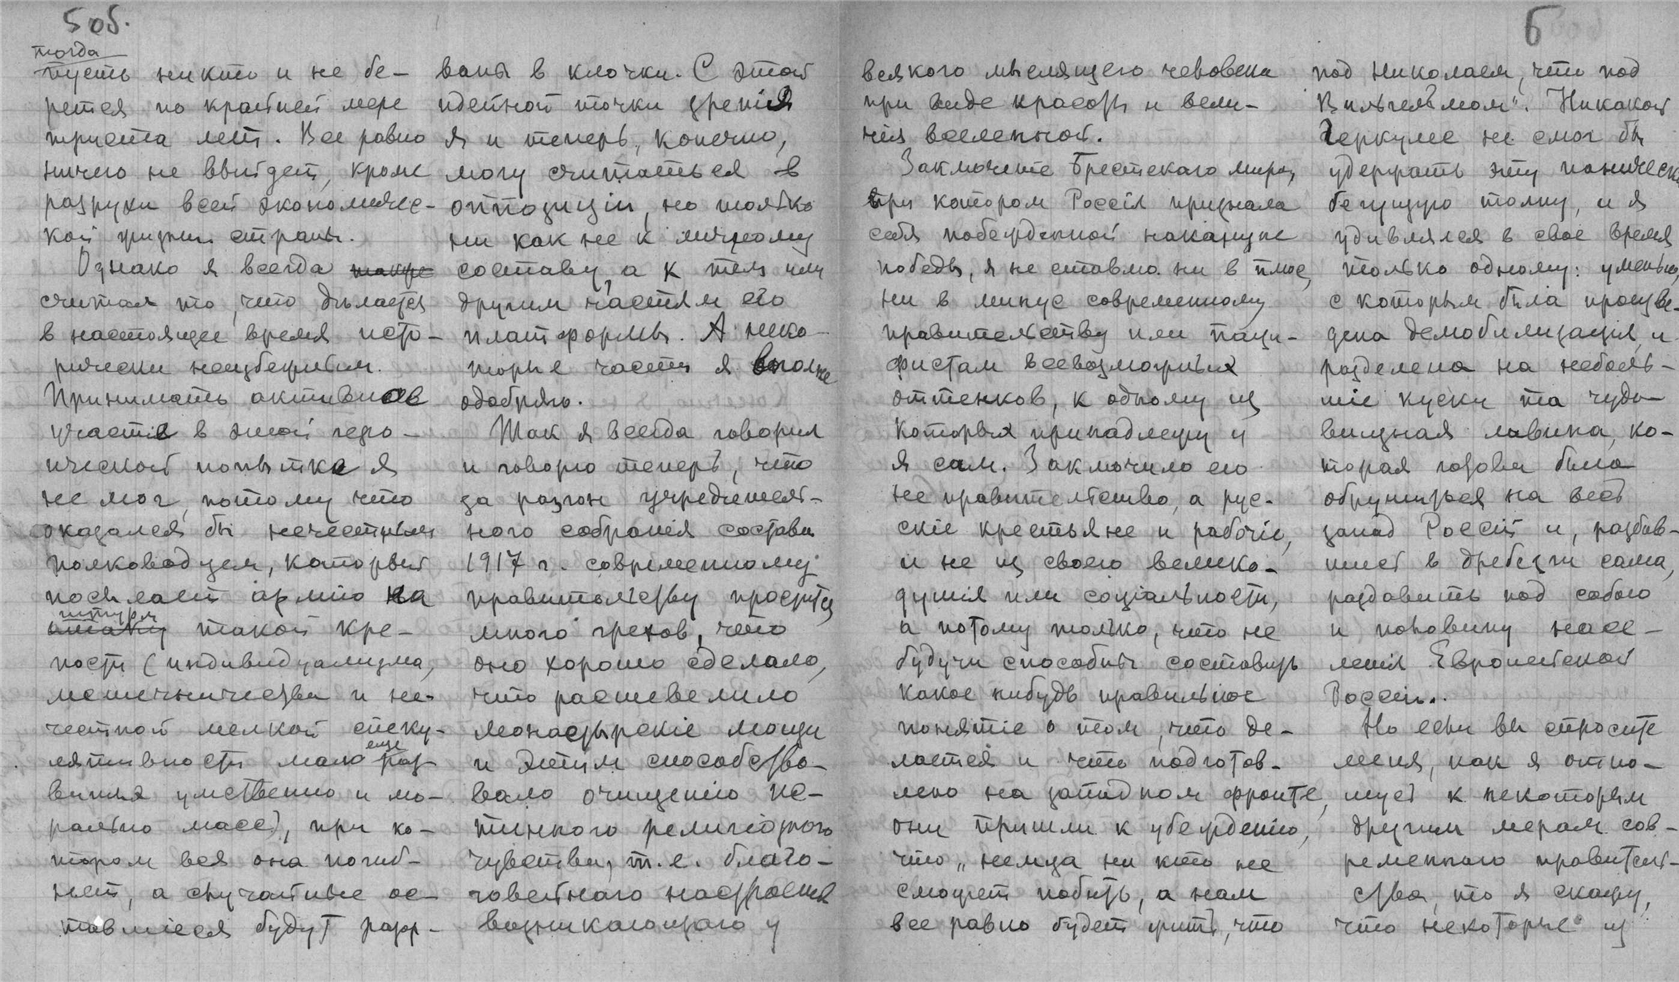 5 об.
тогда
пусть никто и не бе-
рется по крайней мере
триста лет. Все равно
ничего не выйдет, кроме
разрухи всей экономичес-
кой жизни страны.
Однако я всегда также
считал то, что дѣлается
в настоящее время исто-
рически неизбежным.
Принимать активное
участие в этой геро-
ической попытке я
не мог, потому что
оказался бы нечестным
полководцем, который
посылает армію на
штурм
атаку такой кре-
пости (индивидуализма,
мешечничества и не-
честной мелкой спеку-
еще
лятивности мало раз-
витых умственно и мо-
рально масс), при ко-
тором вся она погиб-
нет, а случайные ос-
тавшіеся будут разор-
ваны в клочки. С этой
идейной точки зренія
я и теперь, конечно,
могу считаться в
оппозиціи, но только
ни как не к личному
составу, а к тем или
другим частям его
платформы. А неко-
торые части я вполне
одобряю.
Так я всегда говорил
и говорю теперь, что
за разгон учредитель-
ного собранія состава
1917 г. современному
правительству простится
много грехов, что
оно хорошо сделало,
что расшевелило
монастырскіе мощи
и этим способство-
вало очищенію ис-
тинного религіозного
чувства, т.е. благо-
говейного настроенія
возникающаго у
6
всякого мыслящего человека
при виде красоты и вели-
чія вселенной.
Заключеніе Брестскаго мира,
при котором Россія признала
себя побежденной накануне
победы, я не ставлю ни в плюс,
ни в минус современному
правительству или паци-
фистам всевозможных
оттенков, к одному из
которых принадлежу и
я сам. Заключило его
не правительство, а рус-
скіе крестьяне и рабочіе,
и не из своего велико-
душія или соціальности,
а потому только, что не
будучи способны составить
какое нибудь правильное
понятіе о том, что де-
лается и что подготов-
лено на западном фронте,
они пришли к убежденію,
что „немца ни кто не
сможет побить, а нам
все равно будет жить, что
под Николаем, что под
Вильгельмом“. Никакой
Геркулес не смог бы
удержать эту панически
бегущую толпу, и я
удивлялся в свое время
только одному: уменью,
с которым была произве-
дена демобилизація, и
разделена на неболь-
шіе куски та чудо-
вищная лавина, ко-
торая готова была
обрушиться на весь
запад Россіи и, разбив-
шись в дребезги сама,
раздавить под собою
и половину насе-
ленія Европейской
Россіи..
Но если вы спросите
меня, как я отно-
шусь к некоторым
другим мерам сов-
ременного правитель-
ства, то я скажу,
что некоторые из